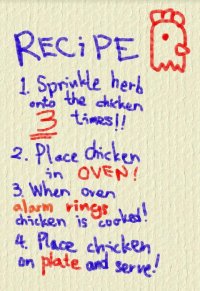 RECIPE
1. Sprinkle herb
onto the chicken
3 times!!
2. Place chicken
in OVEN!
3. When oven
alarm rings
chicken is cooked!
4. Place chicken
on plate and serve!